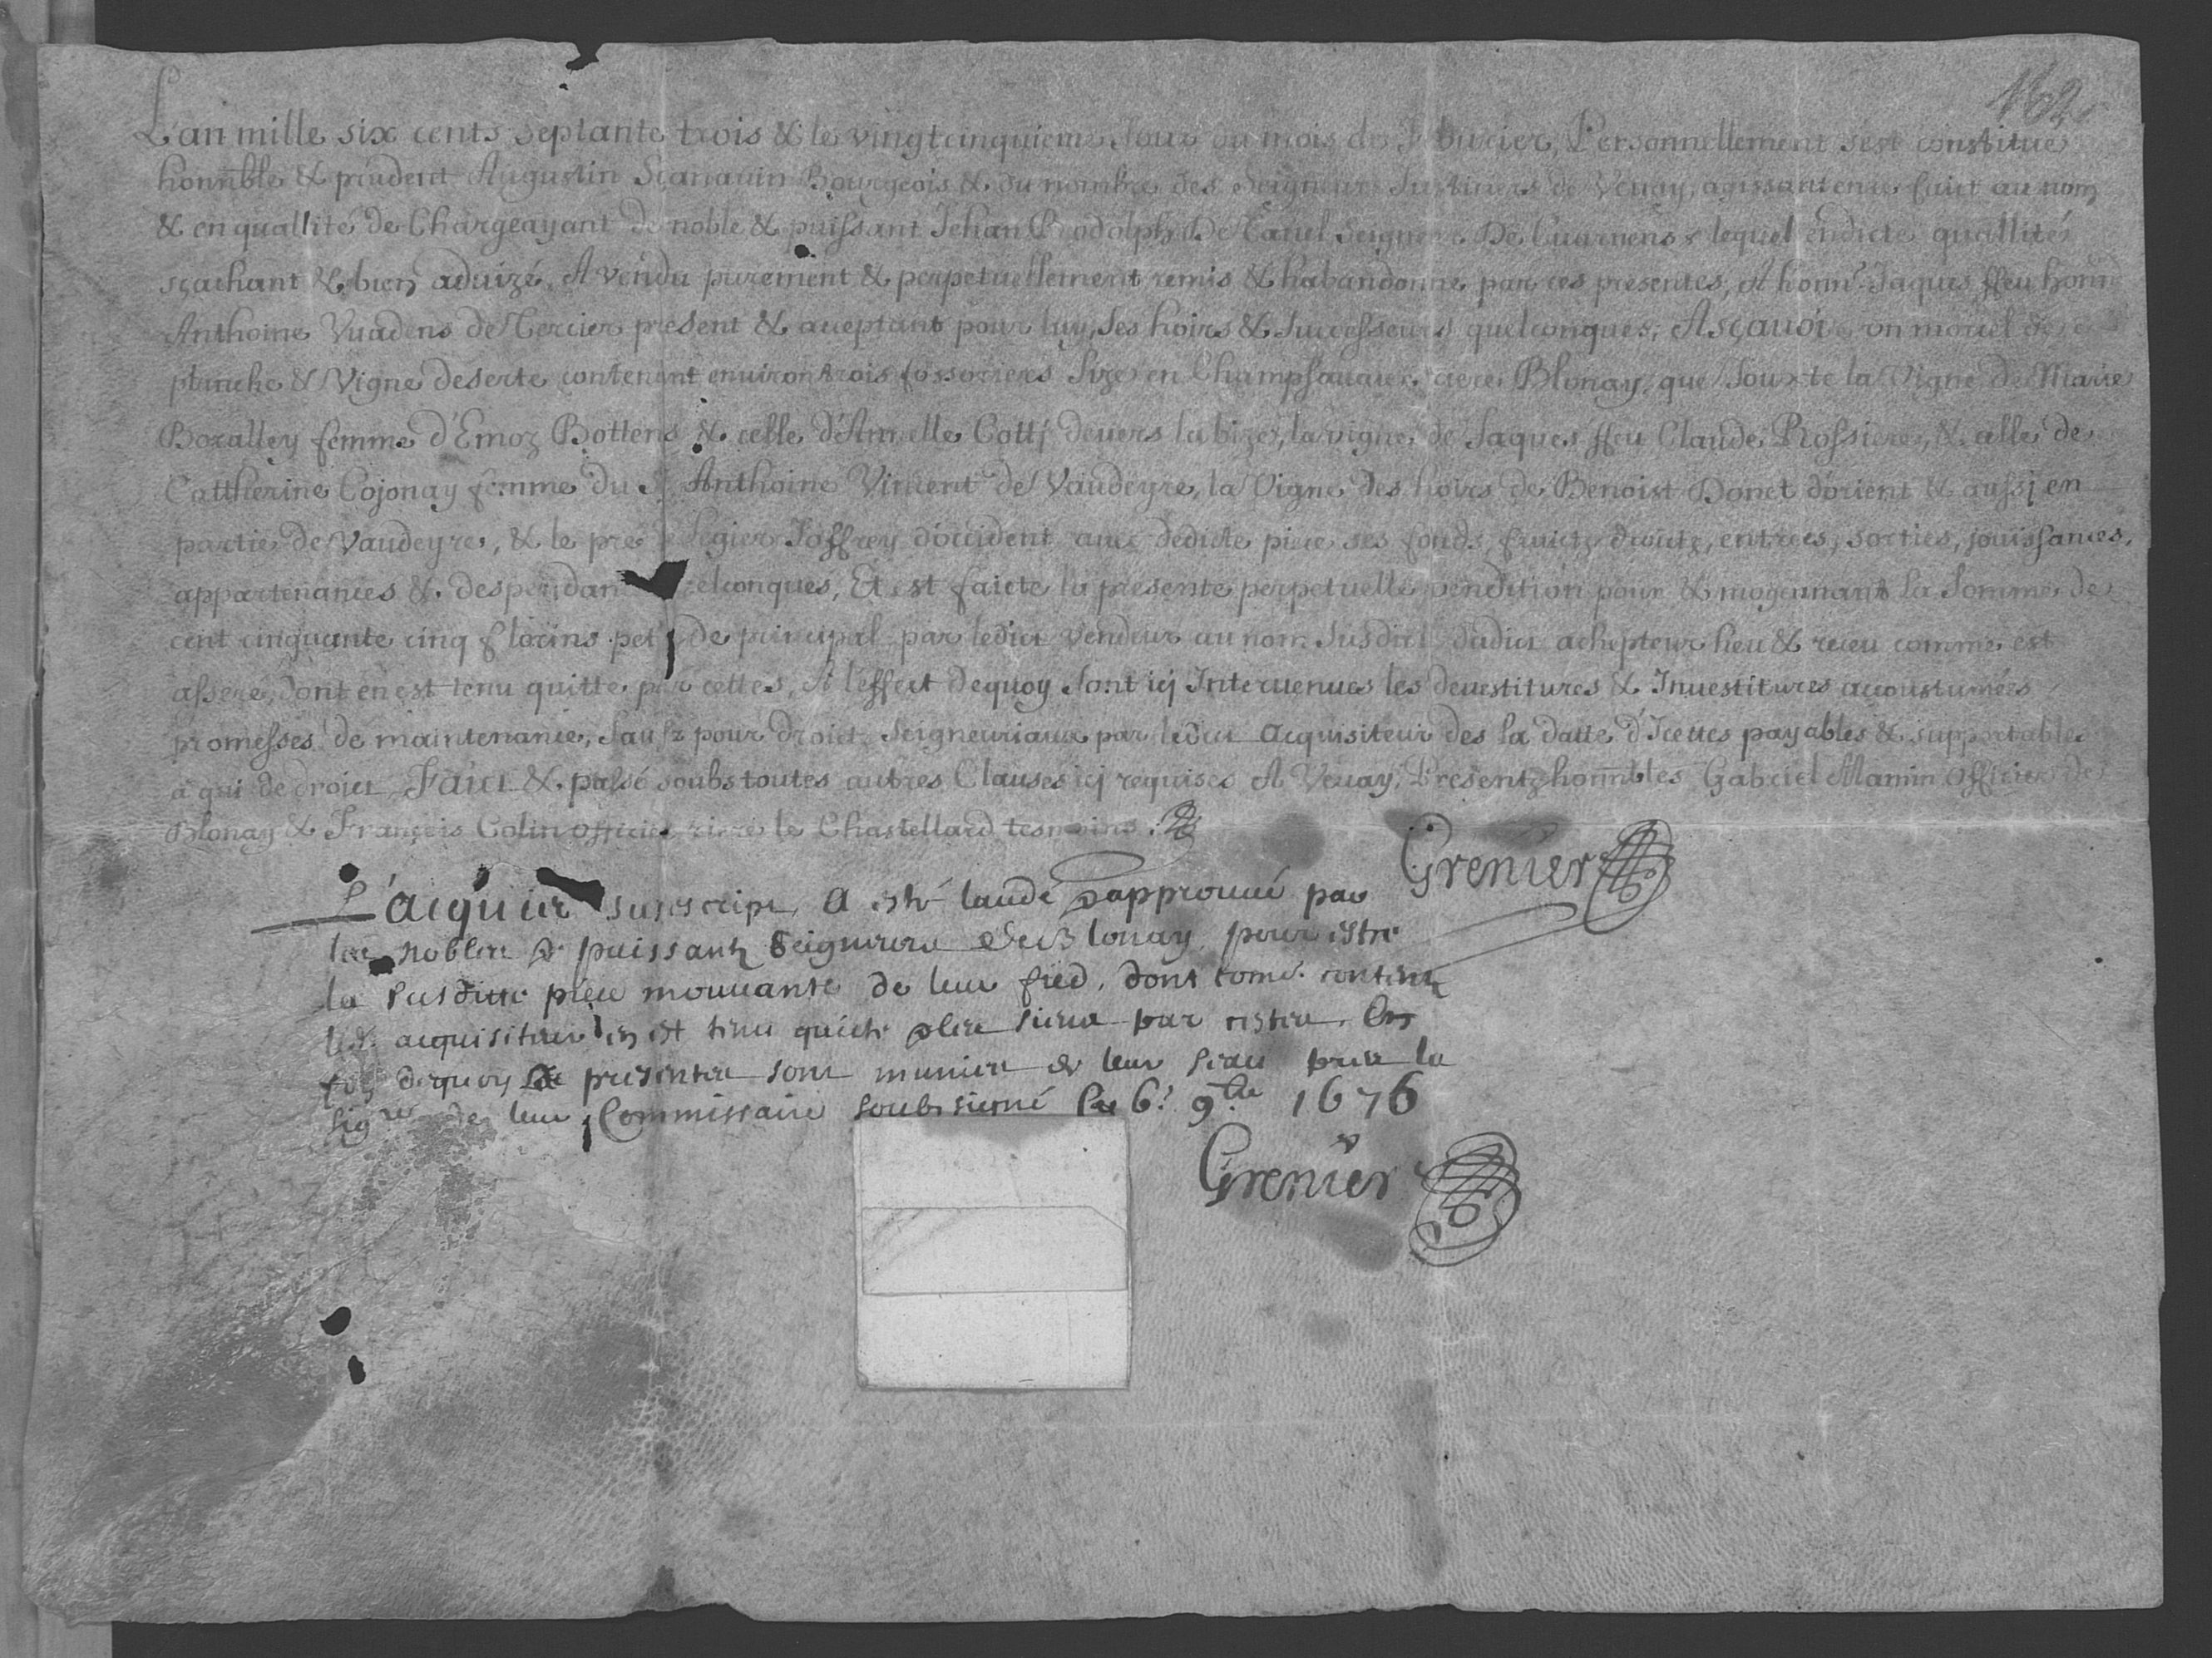 162
L'an mille six cents septante trois & le vingtcinquieme Jour du mois de Feburier, Personnellement s'est constitué
honnble & prudent Augustin Scanauin Bourgeois & du nombre des Seigneurs Justiciers de Veuay, agissant en ce faict au nom
& en quallité de Chargeayant de noble & puissant Jehan Rodolph De Tauel Seigneur De Cuarnens lequel endicte quallité
sçachant & bien aduizé, A vendu purement & perpetuellement remis & habandonné par ces presentes, A honn. Jaques ffeu honn
Anthoine Vuadens de Tercier present & aceptant pour luy, ses hoirs & Successeurs quelconques, Asçauoir vn morcel de
planche & Vigne deserte contenant enuiron trois fossoriers Size en riere Blonay, que Jouxte la Vigne de Marie
Boralley femme d'Emoz Bottens & celle d'Amelle Cottj deuers la bize, la vigne de Jaques ffeu Claude Rossier, & celle de
Cattherine Cojonay femme du Sr Anthoine Vincent de Vaudeyre, la Vigne des hoirs de Benoist Donet d'orient & aussj en
partie de Vaudeyre, & le pré Legier Joffrey d'occident auec dedicte piece ses fonds, fruictz droictz, entrées, sorties, jouissances,
appartenances & despendan elconques, Et est faicte la presente perpetuelle vendition pour & moyennant la Somme de
cent cinquante cinq florins pet de principal par ledict vendeur au nom Susdict dudict achepteur heu & receu comme est
asseré, dont en est tenu quitte par cettes, A l'effect dequoy sont icj Interuenues les deuestitures & Inuestitures accoustumées
promesses de maintenance, saufz pour droict Seigneuriaux par ledict acquisiteur des la datte d'Icettes payables & supportables
a qui de droict, Faict & passé soubs toutes autres Clauses icj requises A Veuay, Presentz honnbles Gabriel Mamin officier de
Blonay & François Colin officier riere le Chastellard tesmoins.
Grenier
L'acquis suscript, a esté laudé & approuué par
les nobles & puissantz Seigneurs de Blonay, pour estre
la susditte piece mouuante de leur fied, dont come content
led. acquisiteur en est tenu quicte & les siens par cestes. En
foy dequoy les presentes sont munies de leur seau sous la
sigre de leur Commissaire soubsigné le 6e 9bre 1676
Grenier